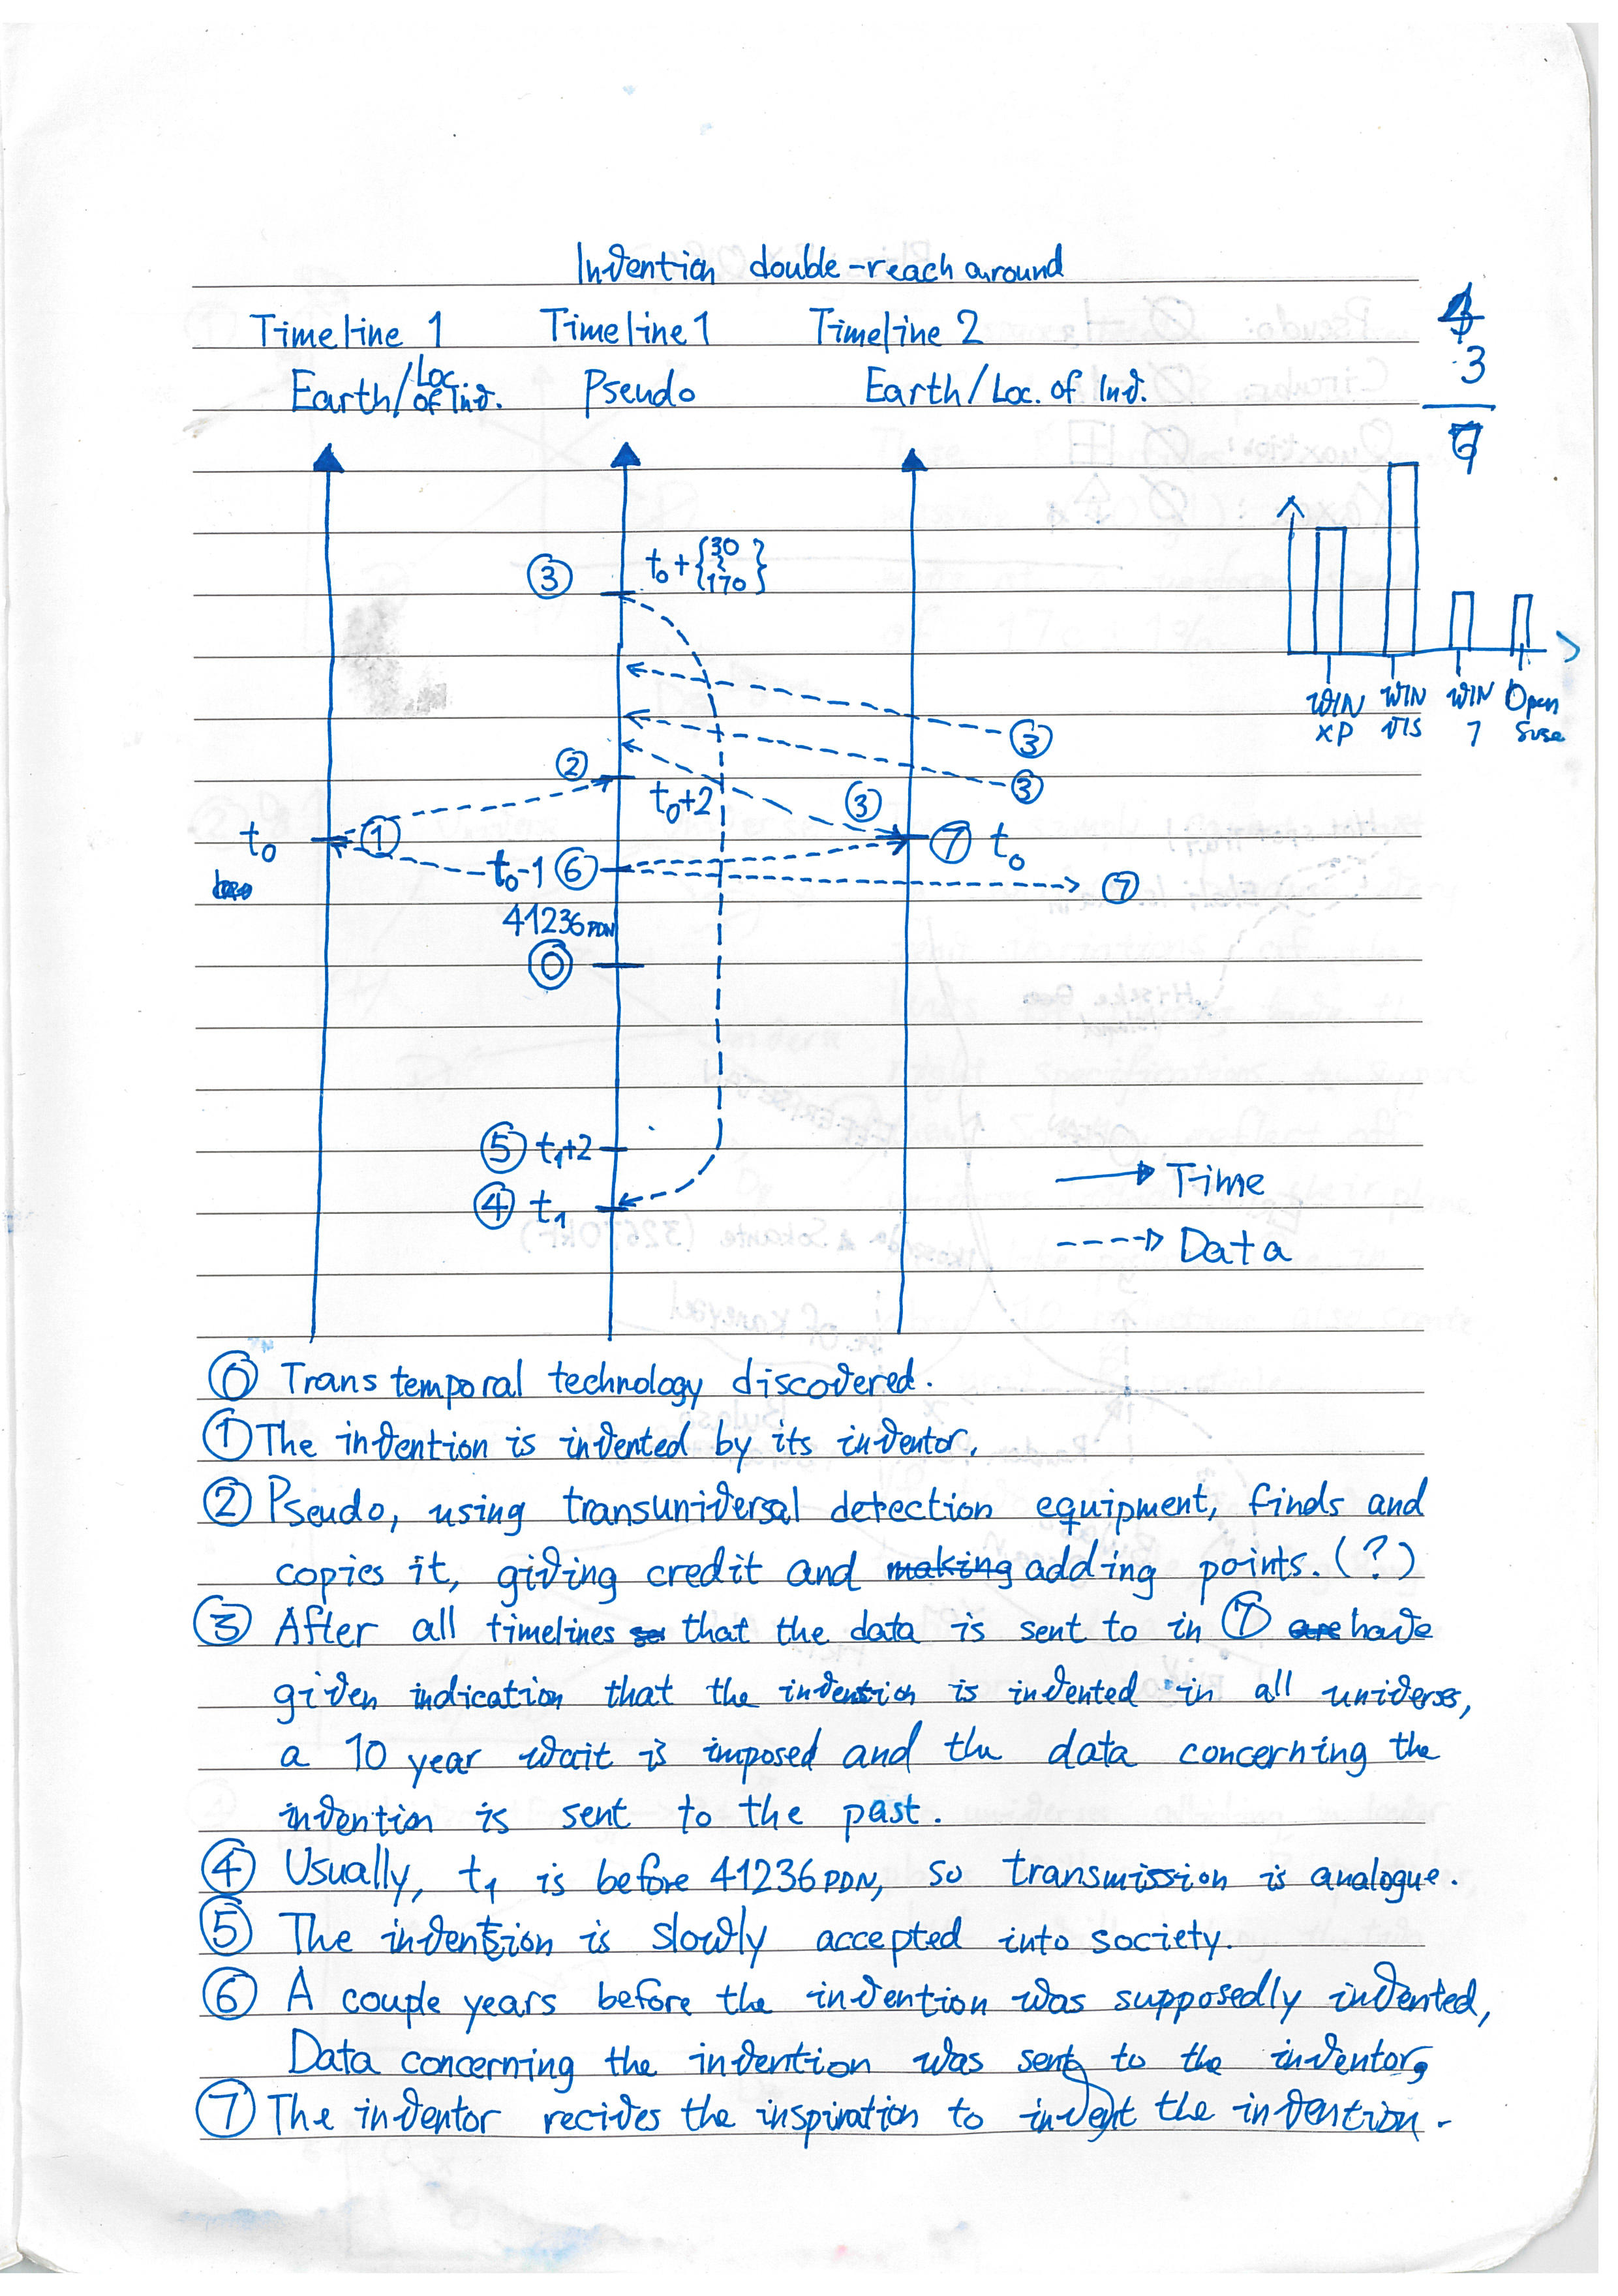 Invention double-reach around
Timeline 1 Timeline 1 Timeline 2
Earth/Loc. of Inv. Pseudo Earth/Loc. of Inv.
3
7
③ t₀+{30 ⌇ 170}
WIN XP
WIN VIS
WIN 7
Open Suse
③
③
② t₀+2 ③
t₀ ① ⑦ t₀
t₀-1 ⑥ ⑦
41236 PDN
⓪
⑤ t₁+2
④ t₁
Time
Data
⓪ Trans temporal technology discovered.
① The invention is invented by its inventor.
② Pseudo, using transuniversal detection equipment, finds and
copies it, giving credit and making adding points. (?)
③ After all timelines that the data is sent to in ⑦ are have
given indication that the invention is invented in all universes,
a 10 year wait is imposed and the data concerning the
invention is sent to the past.
④ Usually, t₁ is before 41236 PDN, so transmission is analogue.
⑤ The invention is slowly accepted into society.
⑥ A couple years before the invention was supposedly invented,
Data concerning the invention was sent to the inventor,
⑦ The inventor recives the inspiration to invent the invention.